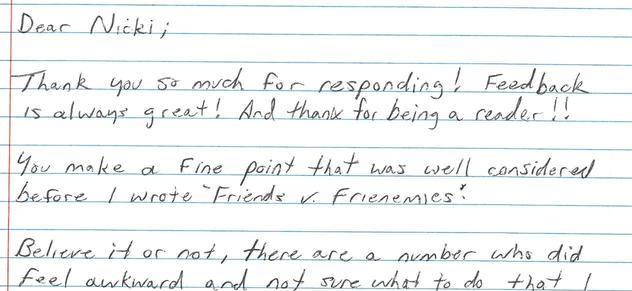 Dear Nicki;
Thank you so much for responding! Feedback
is always great! And thanx for being a reader!!
You make a fine point that was well considered
before I wrote "Friends v. Frienemies".
Believe it or not, there are a number who did
feel awkward and not sure what to do that I